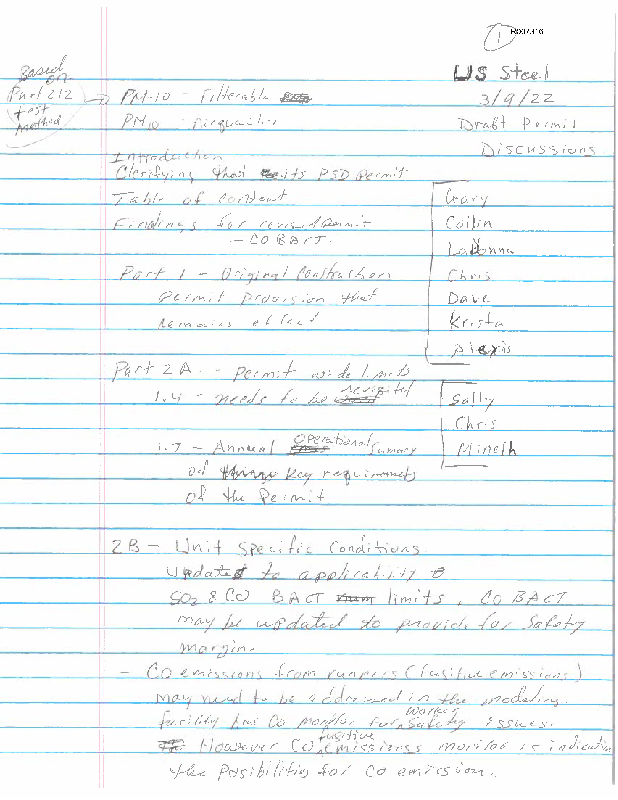 1 R007316
US Steel
3/9/22
Draft Permit
Discussions
Based
on
Part 212
test
Method
→ PM-10 - Filterable
PM10 -
Introduction
Clarifying that its PSD Permit
Table of content
Findings for revised Permit
- CO BACT.
Part 1 - Original Construction
Permit provision that
remains effect
Gary
Caitlin
LaDonna
Chris
Dave
Krista
Alexis
Part 2A - Permit wide limits
1.4 - needs to be revisited
1.7 - Annual Operational Summary
of key requirements
of the Permit
Sally
Chris
Mineth
2B - Unit Specific Conditions
Updates to applicability
SO2 & CO BACT limits, CO BACT
may be updated to provide for Safety
margin.
- CO emissions from runners (fugitive emissions)
may need to be addressed in the modeling.
facility has CO monitor for worker Safety issues.
However CO fugitive emissions monitor is indicating
the Posibilities for CO emission.